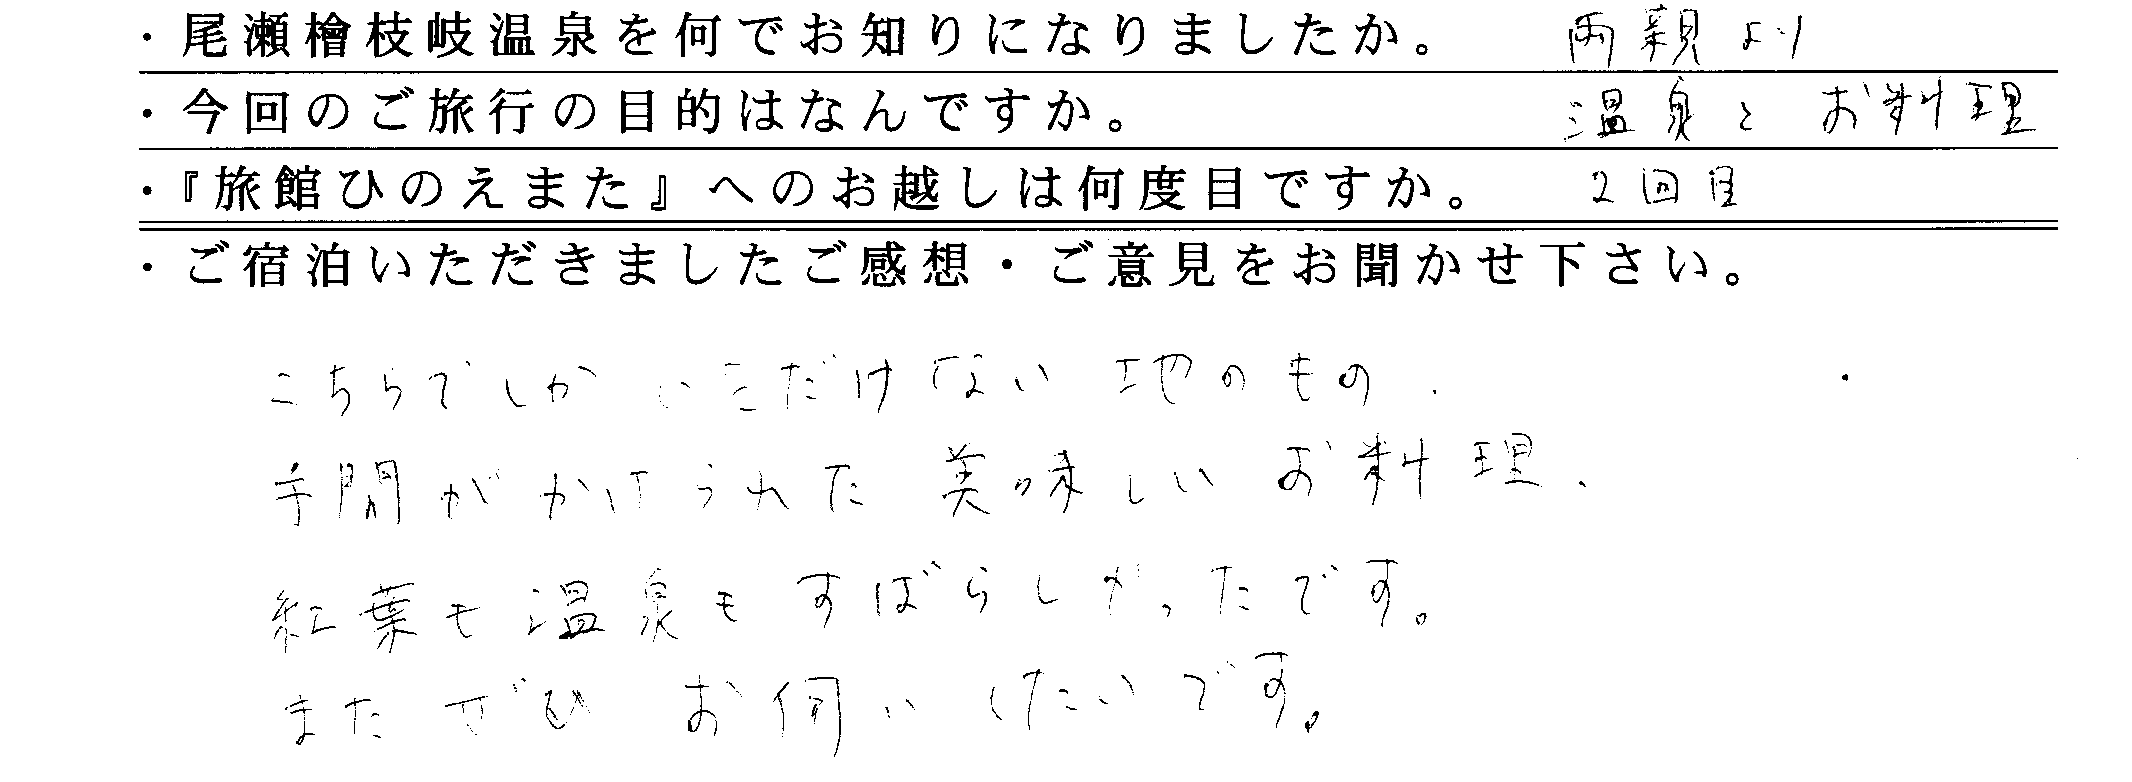 ・尾瀬檜枝岐温泉を何でお知りになりましたか。 両親より
・今回のご旅行の目的はなんですか。 温泉とお料理
・『旅館ひのえまた』へのお越しは何度目ですか。 2回目
・ご宿泊いただきましたご感想・ご意見をお聞かせ下さい。
こちらでしかいただけない地のもの、
手間がかけられた美味しいお料理、
紅葉も温泉もすばらしかったです。
またぜひお伺いしたいです。